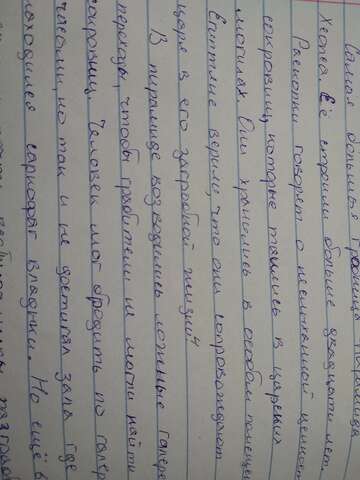 Самая большая гробница пирамида
Хеопса. Её строили больше двадцати лет.
Раскопки говорят о несметной ценност
сокровищ, которые таились в царевых
могилах. Они хранились в особом помеще
Египтяне верили, что они сопровождают
царя в его загробной жизни.
В пирамиде возводились ложные галере
переходы, чтобы грабители не могли найти
сокровищ. Человек мог бродить по галер
часами, но так и не достигал зала где
находился саркофаг владыки. Но ещё в